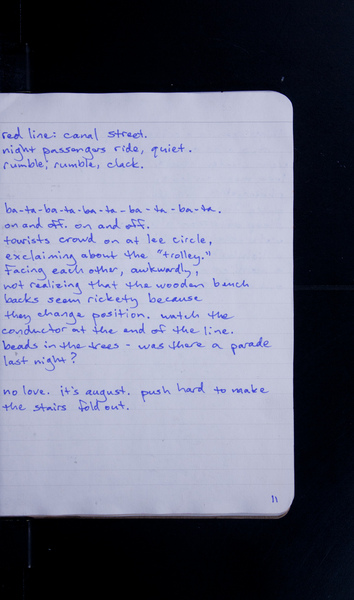 red line: canal street.
night passengers ride, quiet.
rumble, rumble, clack.
ba-ta-ba-ta-ba-ta-ba-ta-ba-ta.
on and off. on and off.
tourists crowd on at lee circle,
exclaiming about the "trolley."
facing each other, awkwardly,
not realizing that the wooden bench
backs seem rickety because
they change position. watch the
conductor at the end of the line.
beads in the trees - was there a parade
last night?
no love. it's august. push hard to make
the stairs fold out.
11